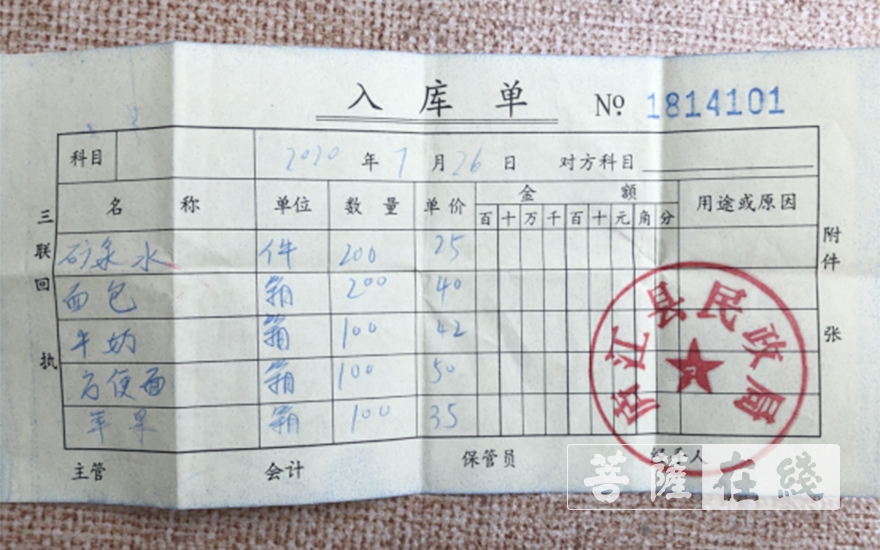 入库单 № 1814101
科目 2020 年 7 月 26 日 对方科目
名 称 单位 数量 单价 金额 用途或原因
百 十 万 千 百 十 元 角 分
矿泉水 件 200 25
面包 箱 200 40
牛奶 箱 100 42
方便面 箱 100 50
苹果 箱 100 35
三联回执
附件 张
庐江县民政局
主管 会计 保管员 经手人
菩薩在綫